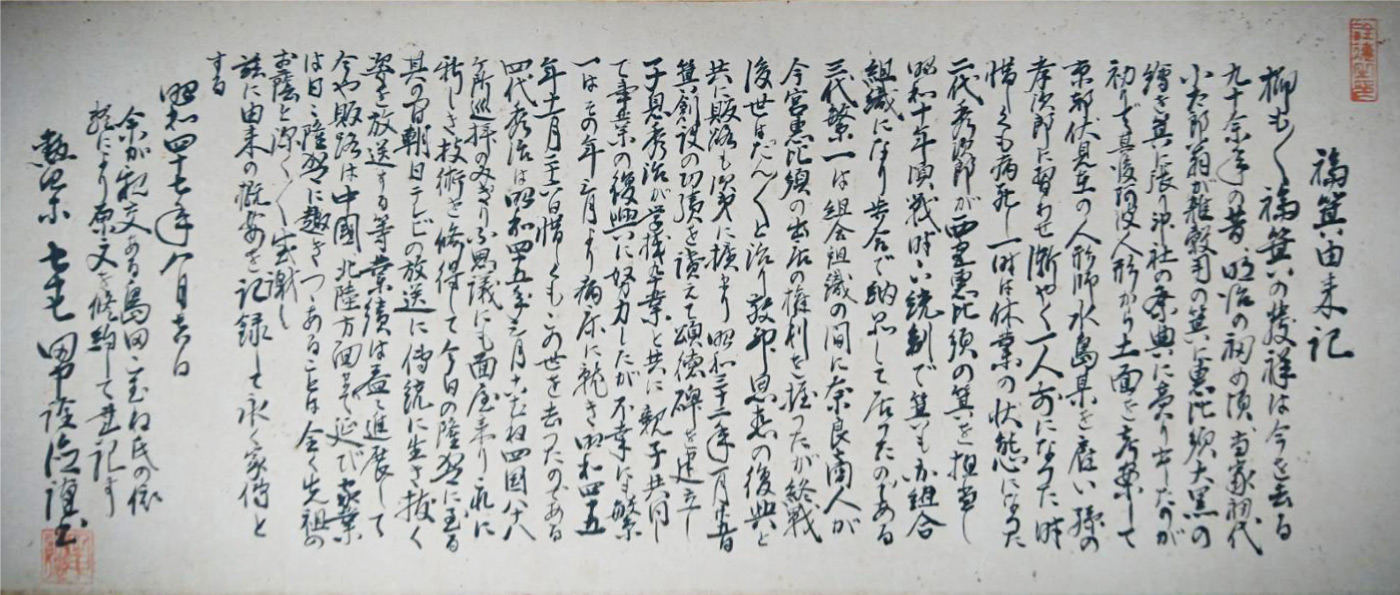 福箕由来記
抑も〱福箕の発祥は今を去る
九十余年の昔、明治の初め頃、当家初代
小太郎翁が雑穀用の箕に恵比須大黒の
繪を箕に張り神社の祭典に売り出したのが
初りで其後阿波人形から土面を考案して
京都伏見在の人形師水島某を雇い孫の
孝次郎に習わせ漸やく一人前になった時
惜しくも病死し一時は休業の状態になった
二代秀次郎が西宮恵比須の箕を担当し
昭和十年頃戦時の統制で箕も亦組合
組織になり歩合で納品して居ったのである
三代繁一は組合組織の間に奈良商人が
今宮恵比須の出店の権利を握ったが終戦
後世はだん〱と治り敬神思想の復興と
共に販路も次第に擴まり昭和三十二年一月十五日
箕創設の功績を讃えて頌徳碑を建立し
子息秀治が学校卒業と共に親子共同し
て事業の復興に努力したが不幸にも繁
一はその年三月より病床に就き昭和四五
年十一月二十六日惜しくもこの世を去ったのである
四代秀治は昭和四五年三月十六日四国八十八
ヶ所巡拝のみぎり不思議にも面屋来り就に
新しき技術を修得して今日の隆盛に至る
其の间朝日テレビの放送に傳統に生き抜く
姿を放送する等業績は益々進展して
今や販路は中國、北陸方面まで延び家業
は日に隆盛に趣きつゝあることは全く先祖の
お蔭と深く〱感謝し
茲に由来の概要を記録して永く家傳と
する
昭和四十七年八月吉日
余が親交ある島田こまね氏の依
頼により原文を修約して並記す
七十七